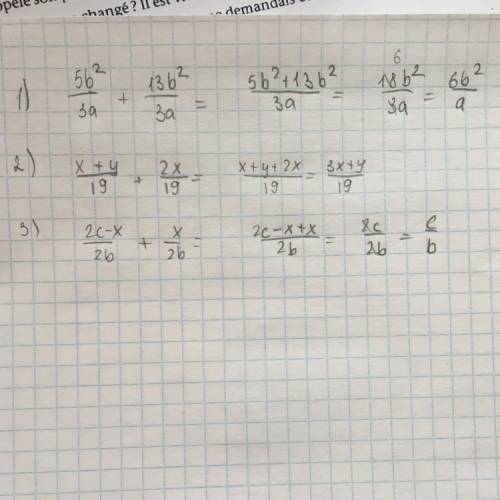 changé ? Il est
demandais
6
1) 5b²/3a + 13b²/3a = 5b²+13b²/3a = 18b²/3a = 6b²/a
2) x+y/19 + 2x/19 = x+y+2x/19 = 3x+y/19
3) 2c-x/2b + x/2b = 2c-x+x/2b = 2c/2b = c/b